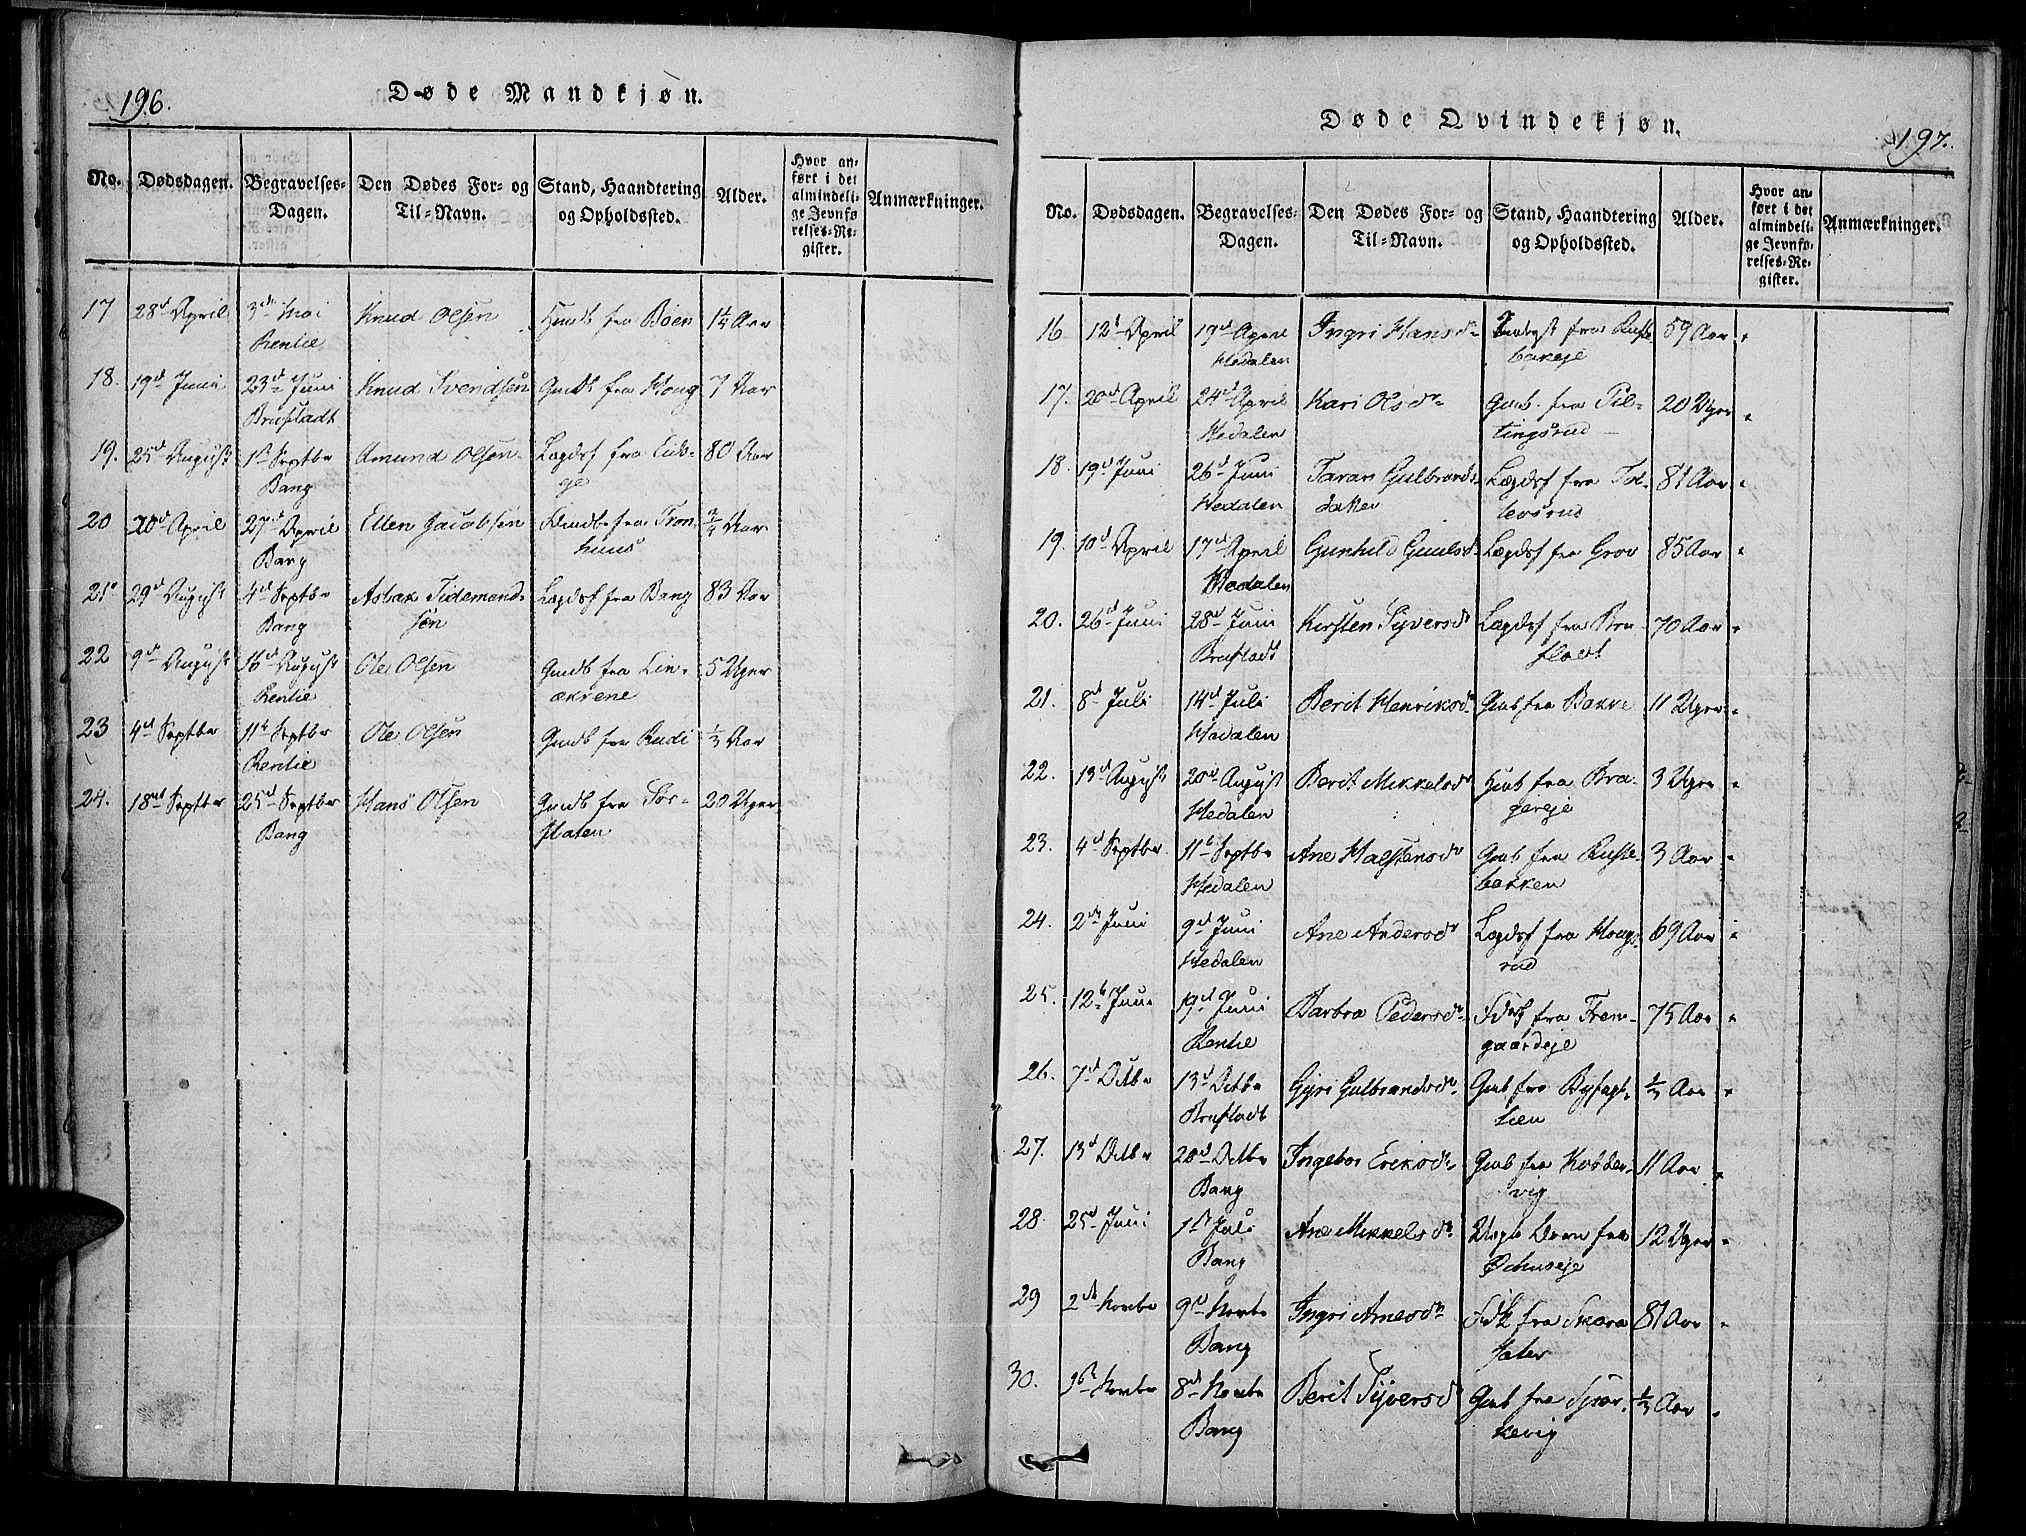 196.
Døde Mandkjøn.
No. Dødsdagen. Begravelses-Dagen. Den Dødes For- og Til-Navn. Stand, Haandtering og Opholdssted. Alder. Hvor anført i det almindelige Jevnførelses-Register. Anmærkninger.
17 28d April 3die Mai Knud Olsen fra Boen 1¼ Aar
18. 19d Juni 23d Juni Knud Svendsen fra Houg 7 Aar
Brufladt
19. 25d August 1st Septbr Amund Olsen Lægdsl fra 80 Aar
Bang
20 20d April 27d April Ellen Jacobsen fra Tron- ¾ Aar
Bang huus
21 29d August 4d Septbr Asbak Tidemand- Lægdsl fra Bang 83 Aar
Bang sen
22 9d August 16d August Ole Olsen fra Lin- 5 Uger
akrene
23 4d Septbr 11t Septbr Ole Olsen fra Rudi ⅓ Aar
24. 18d Septbr 25d Septbr Hans Olsen fra Tor- 20 Uger
Bang flaten
Døde Qvindekjøn.
197.
No. Dødsdagen. Begravelses-Dagen. Den Dødes For- og Til-Navn. Stand, Haandtering og Opholdssted. Alder. Hvor anført i det almindelige Jevnførelses-Register. Anmærkninger.
16 12t April 19d April Ingri Hansdr fra Ruste- 59 Aar
Hedalen bakeje
17. 20d April 24d April Kari Olsdr fra Til- 20 Uger
Hedalen tingsrud
18. 19d Juni 26d Juni Taran Gulbrands- Lægdsl fra Tol- 81 Aar
Hedalen datter levsrud
19. 10d April 17d April Gunhild Guulsd Lægdsl fra Grov 85 Aar
Hedalen
20. 26d Juni 28d Juni Kirsten Syversdr Lægdsl fra Bru- 70 Aar
Brufladt fladt
21. 8d Juli 14d Juli Berit Henriksdr fra Bakke 11 Uger
Hedalen
22. 13d August 20d August Berit Mikkelsdr fra Bra- 3 Uger
Hedalen gereje
23. 4d Septbr 11t Septbr Ane Halstensdr fra Ruste- 3 Aar
Hedalen bakken
24. 2d Juni 9d Juni Ane Andersdr Lægdsl fra Houg- 69 Aar
Hedalen rud
25. 12t Juni 19d Juni Barbra Pedersdr fra Fren- 75 Aar
gaardeje
26. 7d Octbr 13d Octbr Gyri Gulbrandsdr fra ⅓ Aar
Brufladt lien
27. 13d Octbr 20d Octbr Ingebor Eriksdr fra Kobder- 11 Aar
Bang vig
28 25d Juni 1st Juli Ane Mikkelsdr fra 12 Uger
Bang
29 2d Novbr 9d Novbr Ingri Arnesdr fra Skara 81 Aar
Bang
30. 1st Novbr 8d Novbr Berit Syversdr fra Spar- ⅓ Aar
Bang kevig